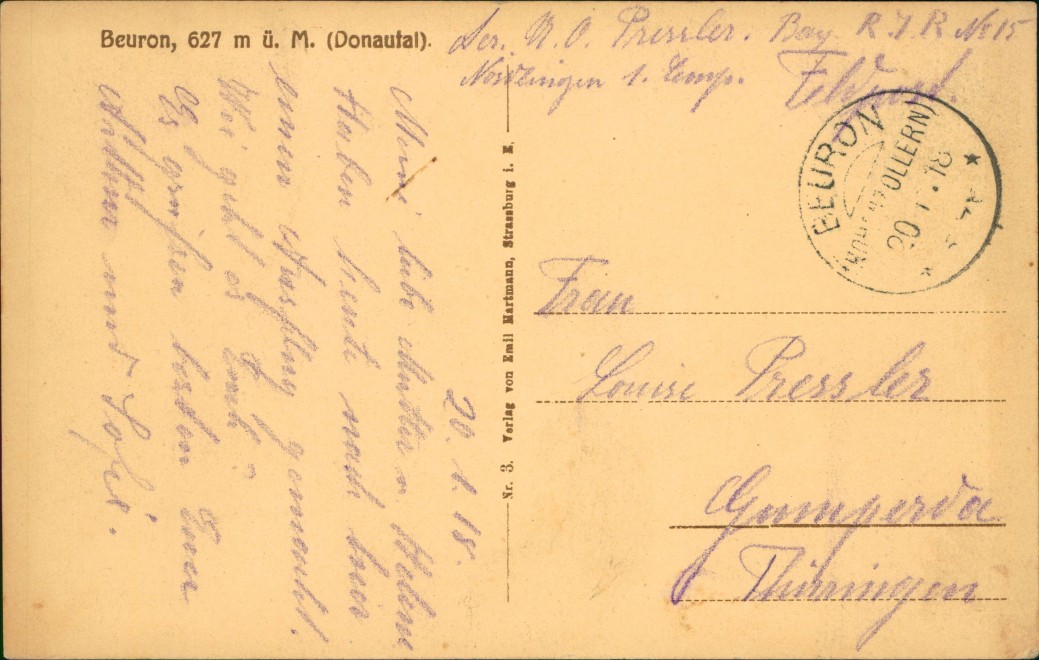 Beuron, 627 m ü. M. (Donautal).
U. O. Pressler. Bay. R. I. R. No 15
1. Comp.
Feldpost.
BEURON
(HOHENZOLLERN)
20. 1. 18
20. 1. 18.
Meine liebe Mutter u Helene
Haben heute nach hier
einen Ausflug gemacht.
Wie geht es Euch?
Es grüßen beiden Eure
und Sofie.
Nr. 3. Verlag von Emil Hartmann, Strassburg i. E.
Frau
Louise Pressler
Gumperda
Thüringen